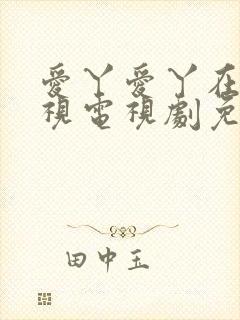 愛丫愛丫在
視電視劇免
田中玉